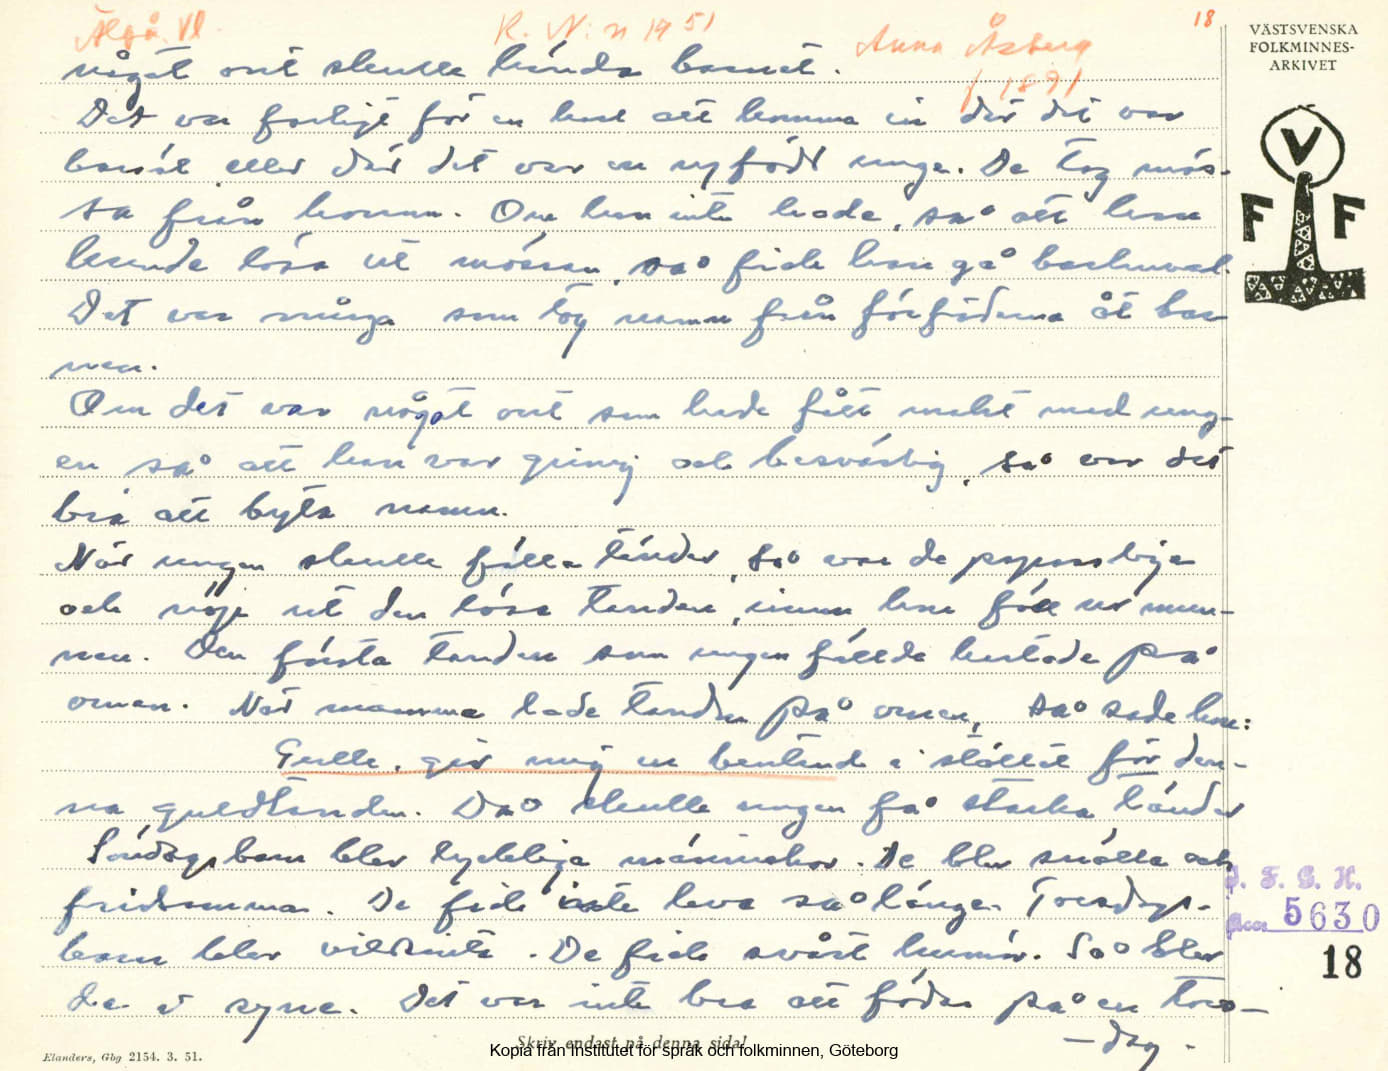 Älgå. Vl
K. N:n 1951
Anna Åsberg
f 1891
18
VÄSTSVENSKA
FOLKMINNES-
ARKIVET
V
F F
något ont skulle hända barnet.
Det var farligt för en karl att komma in där det var
barsöl eller där det var en nyfödd unge. De tog mös-
sa från honom. Om han inte hade, så att han
kunde lösa ut mössan, så fick han gå barhuvad.
Det var många som tog namn från förfäderna åt bar
nen.
Om det var något ont som hade fått makt med ung-
en så att han var grinig och besvärlig, så var det
bra att byta namn.
När ungen skulle fälla tänder, så var de
och nöje ut den lösa tanden, innan han föll ur mun-
nen. Den första tanden som ungen fällde kastade på
omen. När mamma lade tanden på omen, så sade hon:
Gulle, giv mig en bentand i stället för den-
na guldtanden. Då skulle ungen få starka tänder
Söndagsbarn blev lyckliga människor. De blev snälla och
fridsamma. De fick inte leva så länge. Torsdags-
barn blev vildsinta. De fick svårt humör. Så blev
de i syne. Det var inte bra att födas på en tors-
-dag.
J. F. G. H.
Acc. 5630
18
Skriv endast på denna sida!
Elanders, Gbg 2154. 3. 51.
Kopia från Institutet för språk och folkminnen, Göteborg